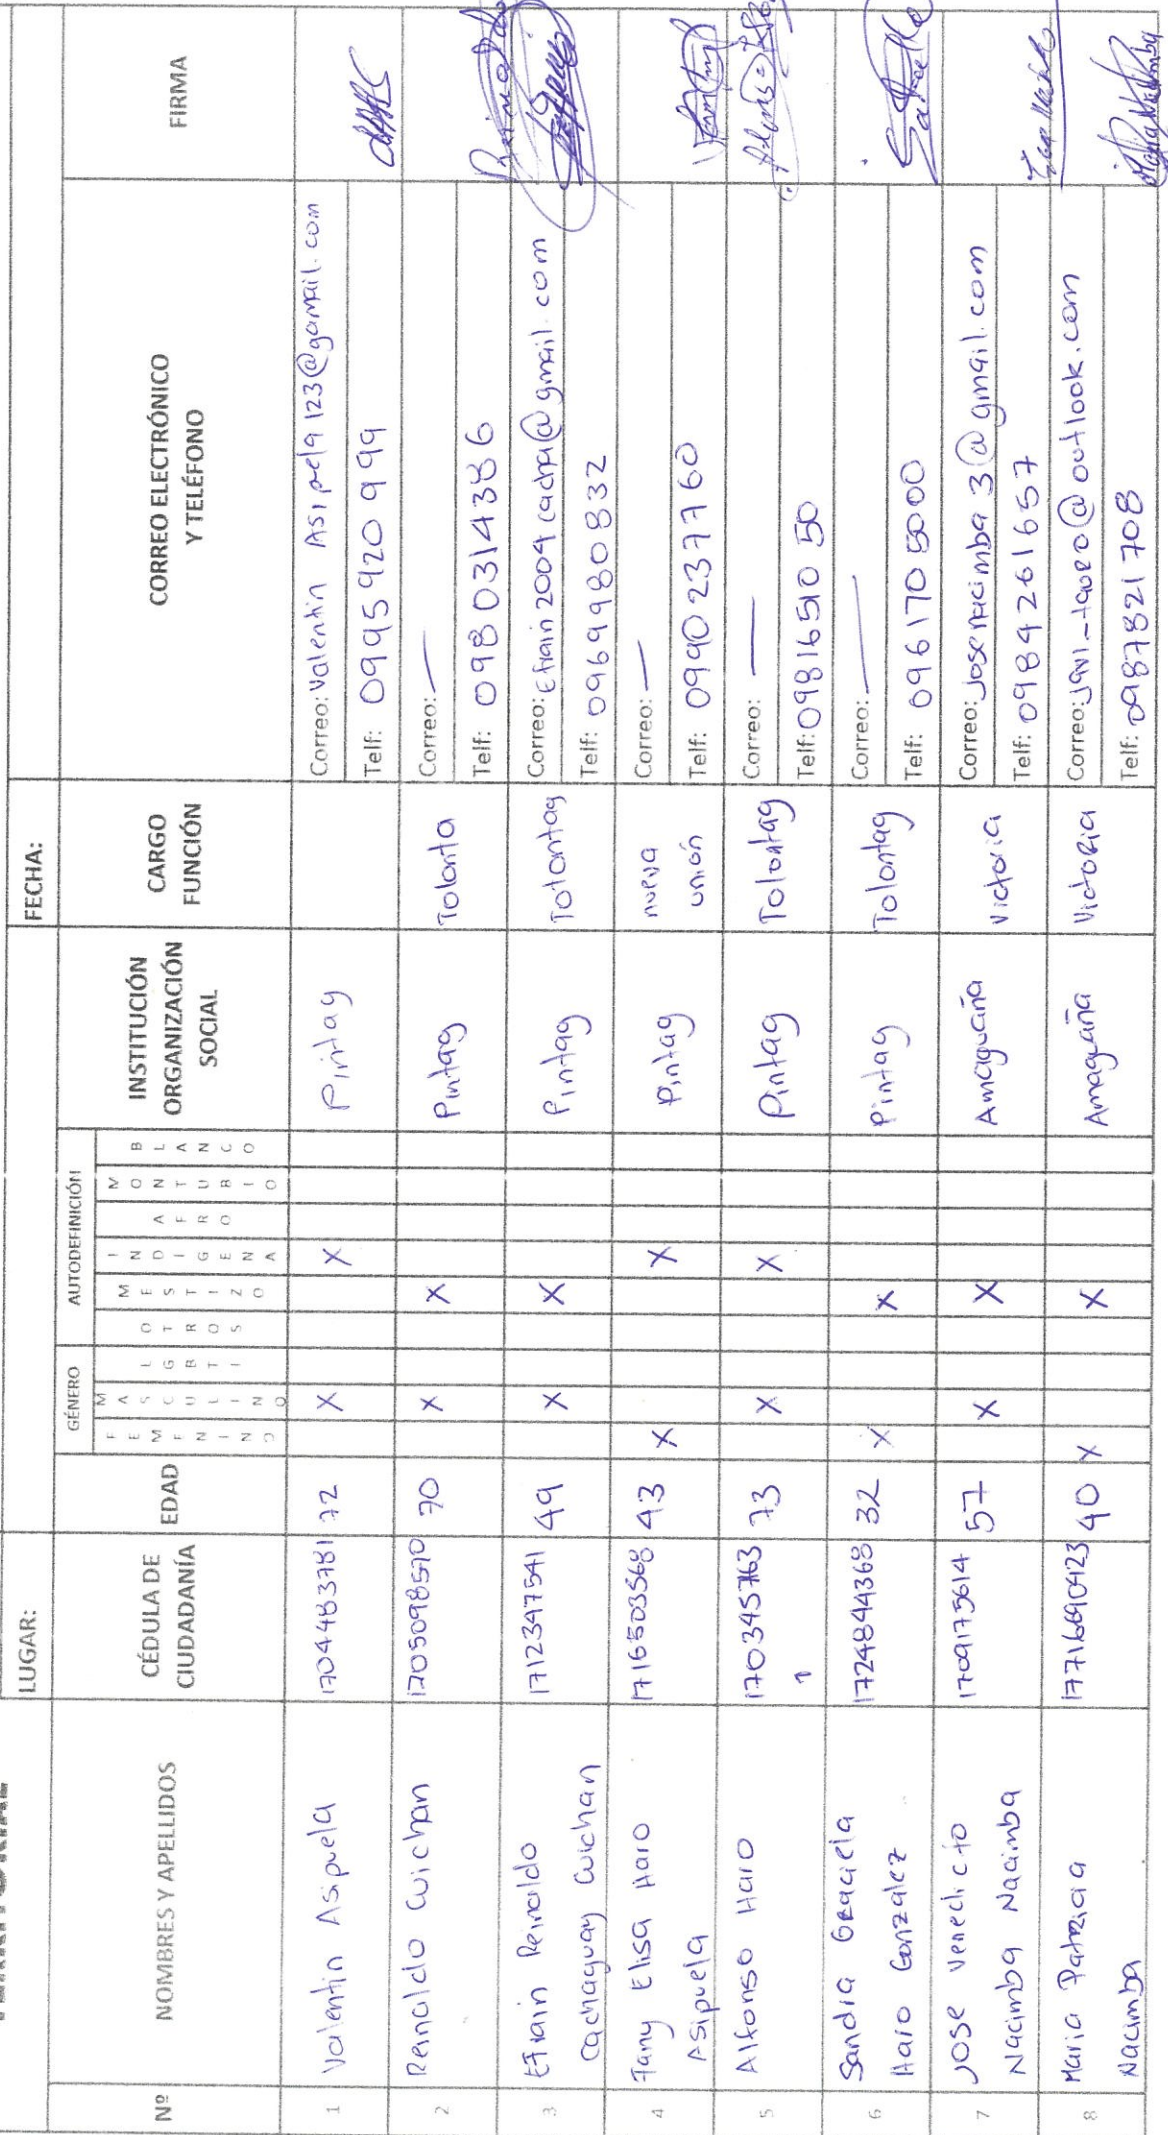 LUGAR:
FECHA:
Nº
NOMBRES Y APELLIDOS
CÉDULA DE
CIUDADANÍA
EDAD
GÉNERO
FEMENINO
MASCULINO
LGBTI
AUTODEFINICIÓN
OTROS
MESTIZO
INDIGENA
AFRO
MONTUBIO
BLANCO
INSTITUCIÓN
ORGANIZACIÓN
SOCIAL
CARGO
FUNCIÓN
CORREO ELECTRÓNICO
Y TELÉFONO
FIRMA
1
Valentin Asipuela
1704483781
72
X
X
Pintag
Correo: Valentin Asipela123@gamail.com
Telf: 0995920999
2
Reinaldo Cuichan
1705098570
70
X
X
Pintag
Tolonta
Correo: —
Telf: 0980314386
3
Efrain Reinaldo
Cachaguay Cuichan
1712347541
49
X
X
Pintag
Tolontag
Correo: Efrain2004cacha@gmail.com
Telf: 0969980832
4
Fany Elisa Haro
Asipuela
1716503568
43
X
X
Pintag
nueva
unión
Correo: —
Telf: 0990237760
5
Alfonso Haro
170345763
1
73
X
X
Pintag
Tolontag
Correo: —
Telf: 0981651050
6
Sandra Graciela
Haro Gonzalez
1724844368
32
X
X
Pintag
Tolontag
Correo: —
Telf: 0961705000
7
Jose Venedicto
Nacimba Nacimba
1709175614
57
X
X
Amaguaña
Victoria
Correo: Josenacimba3@gmail.com
Telf: 0984261657
8
Maria Patricia
Nacimba
17716690423
40
X
X
Amaguaña
Victoria
Correo: Javi_tavero@outlook.com
Telf: 0987821708